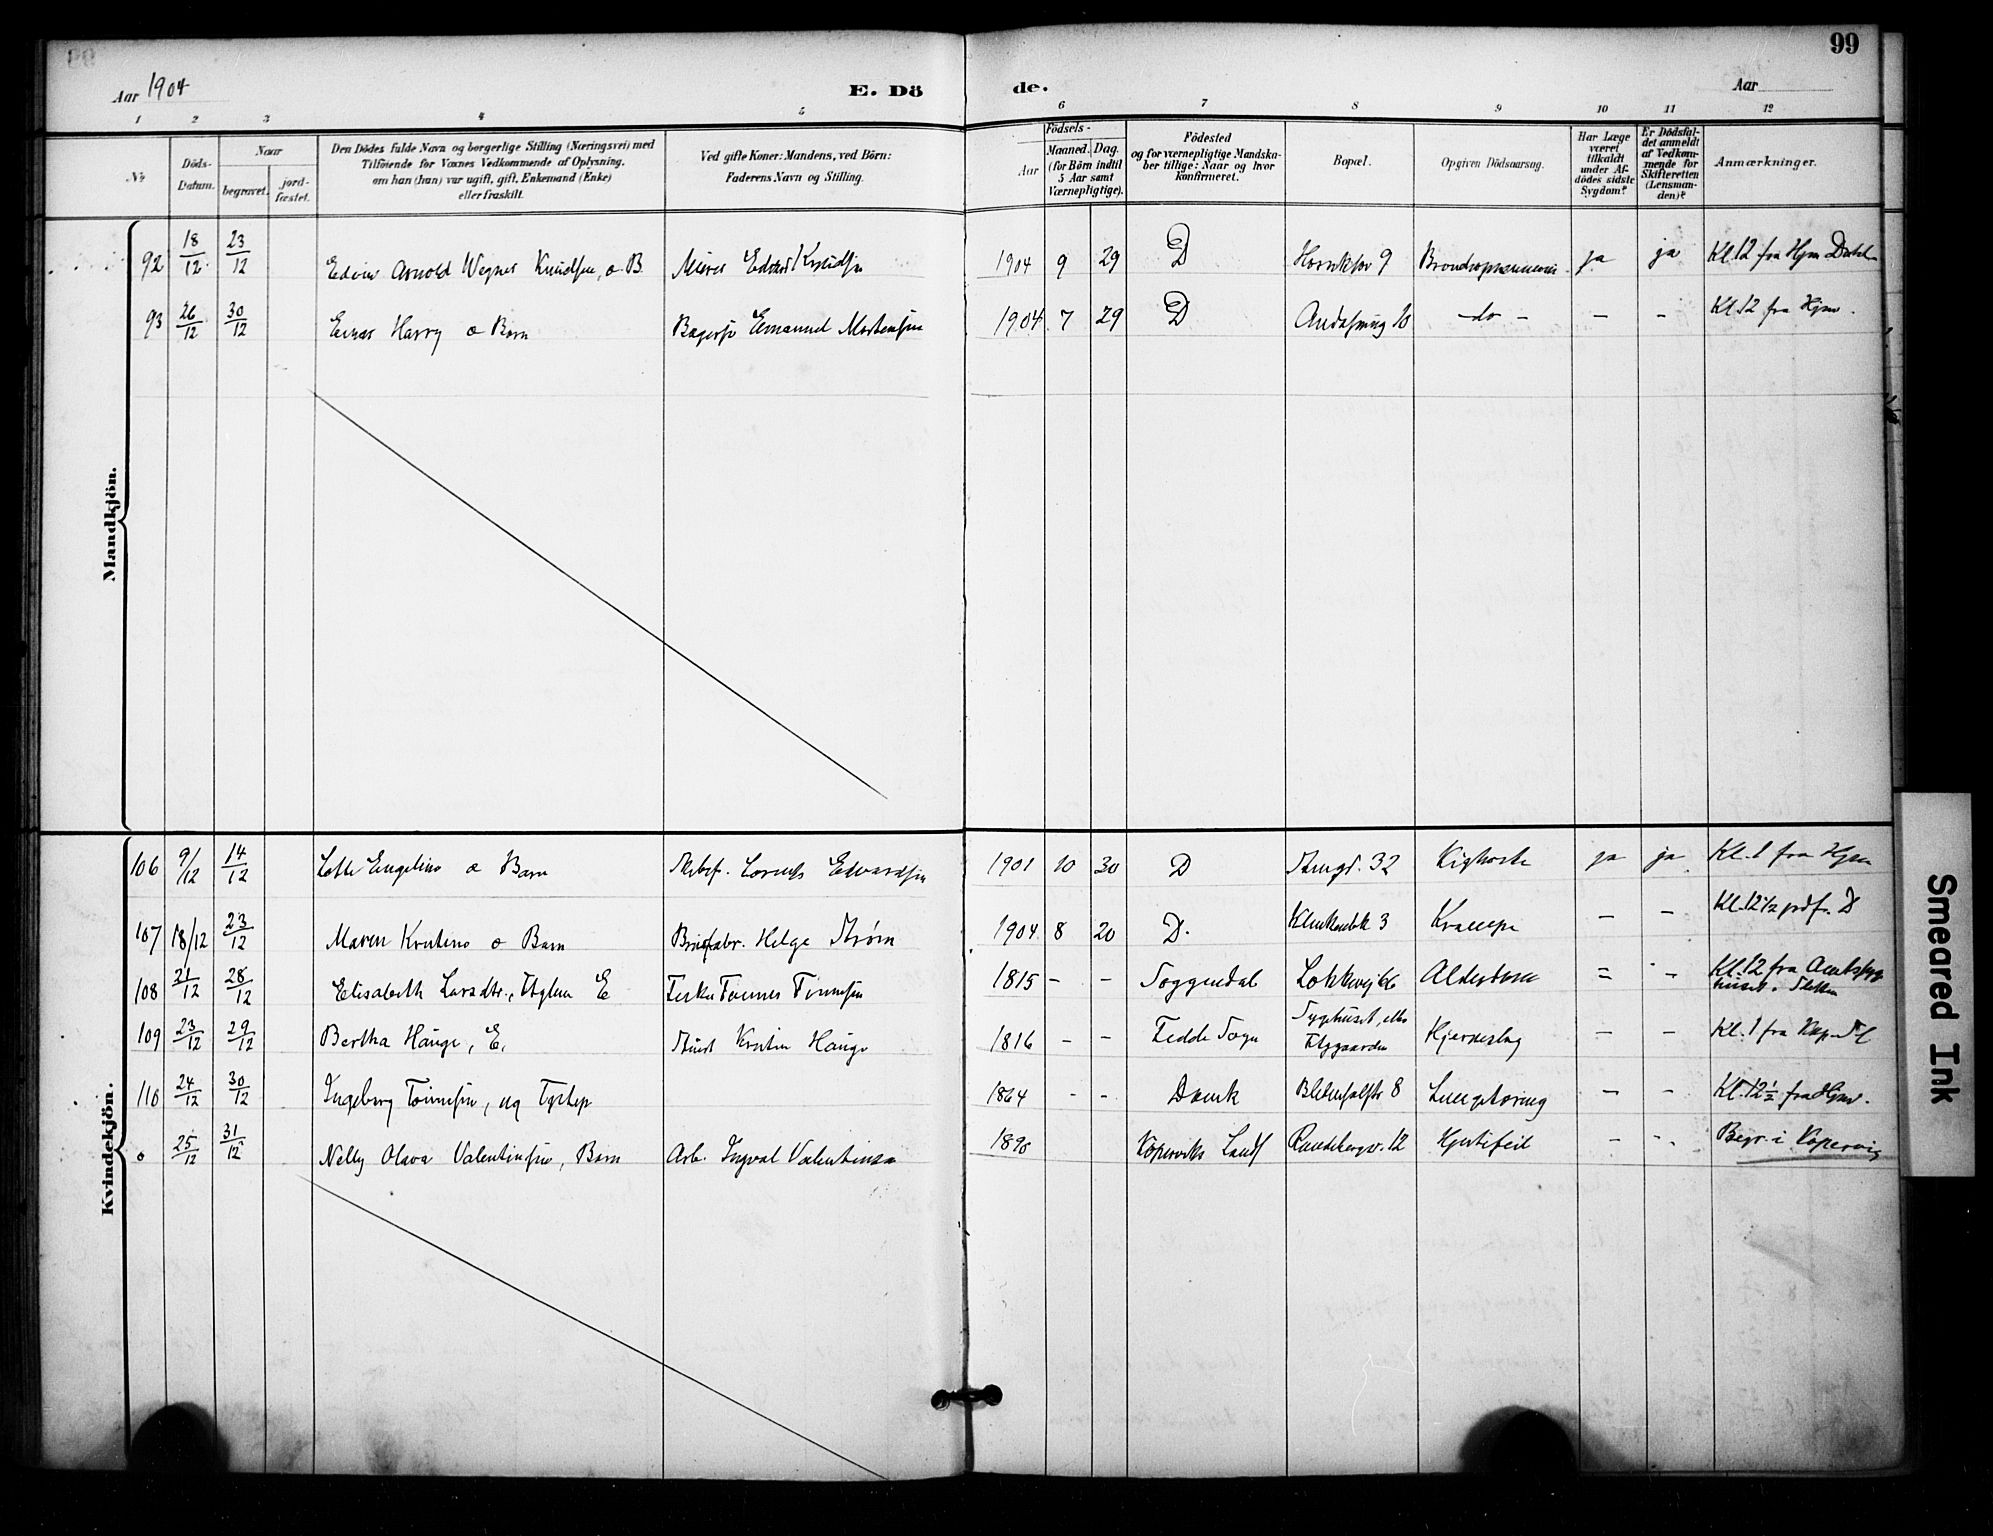 99
Aar 1904
E. Dö de.
Aar
1 2 3 4 5 6 7 8 9 10 11 12
No
Döds-Datum.
Naar
begravet.
jord-fæstet.
Den Dödes fulde Navn og borgerlige Stilling (Næringsvei) med
Tilföiende for Voxnes Vedkommende af Oplysning,
om han (hun) var ugift, gift, Enkemand (Enke)
eller fraskilt.
Ved gifte Koner: Mandens, ved Börn:
Faderens Navn og Stilling.
Födsels-
Aar
Maaned. Dag.
(for Börn indtil
5 Aar samt
Værnepligtige).
Födested
og for værnepligtige Mandska-
ber tillige: Naar og hvor
konfirmeret.
Bopæl.
Opgiven Dödsaarsag.
Har Læge
været
tilkaldt
under Af-
dödes sidste
Sygdom?
Er Dödsfal-
det anmeldt
af Vedkom-
mende for
Skifteretten
(Lensman-
den)?
Anmærkninger.
Mandkjön.
92 18/12 23/12 Edvin Arnold Wegner Knudsen, o B. Murer Edvard Knudsen 1904 9 29 D 9 ja ja Kl. 12 fra Hjm
93 26/12 30/12 Einar Harry o Barn Emanuel Mortensen 1904 7 29 D do - - - Kl. 12 fra Hjm.
Kvindekjön.
106 9/12 14/12 Engeline o Barn Edvardsen 1901 10 30 D 32 Kighoste ja ja Kl. 1 fra Hjm
107 18/12 23/12 Maren o Barn Helge Strøm 1904 8 20 D. 3 Krampe - - Kl. 12 1/2 D
108 21/12 28/12 Elisabeth Larsdtr., E Fisker Tønnes Tønnesen 1815 - - Soggendal Alderdom = - Kl. 12 fra
109 23/12 29/12 Bertha Hauge, E. Hauge 1816 - - Fedde Sogn Sygehuset, Hjerneslag - - Kl. 1 fra
110 24/12 30/12 Ingeborg Tønnesen, ug 1864 - - 8 - - Kl. 12 1/2 fra Hjm.
o 25/12 31/12 Nelly Olava Valentinsen, Barn Arb. Ingval Valentinsen Kopervik 12 Hjertefeil - - Begr. i Kopervig
Smeared Ink